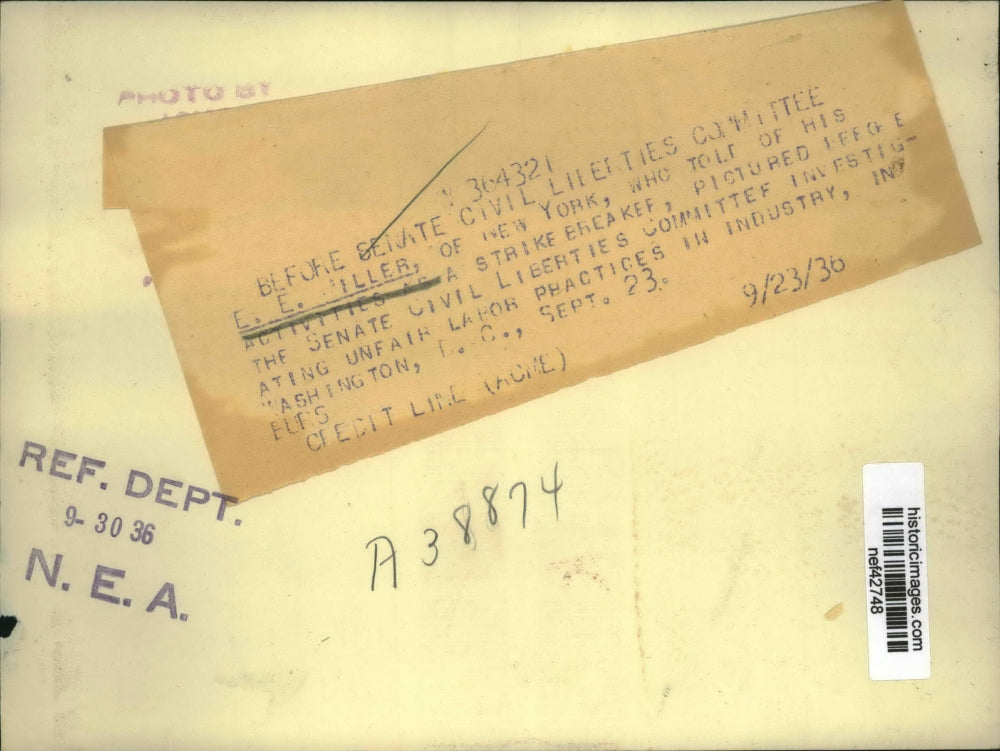 PHOTO BY
364321
BEFORE SENATE CIVIL LIBERTIES COMMITTEE
E. E. MILLER, OF NEW YORK, WHO TOLD OF HIS
ACTIVITIES AS A STRIKE BREAKER, PICTURED BEFORE
THE SENATE CIVIL LIBERTIES COMMITTEE INVESTIG-
ATING UNFAIR LABOR PRACTICES IN INDUSTRY, IN
WASHINGTON, D. C., SEPT. 23.
BURS
CREDIT LINE (ACME)
9/23/36
REF. DEPT.
9-30 36
N. E. A.
A38874
historicimages.com
nef42748